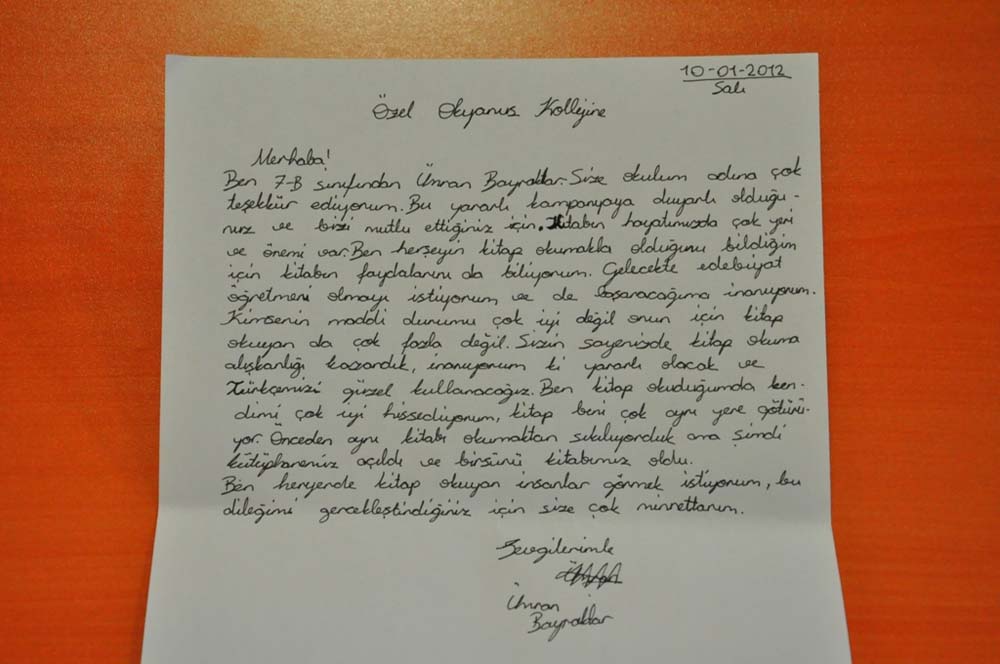 10-01-2012
Salı
Özel Okyanus Kollejine
Merhaba!
Ben 7-B sınıfından Ümran Bayraktar. Size okulum adına çok
teşekkür ediyorum. Bu yararlı kampanyaya duyarlı olduğu-
nuz ve bizi mutlu ettiğiniz için. Kitabın hayatımızda çok yeri
ve önemi var. Ben herşeyin kitap okumakla olduğunu bildiğim
için kitabın faydalarını da biliyorum. Gelecekte edebiyat
öğretmeni olmayı istiyorum ve de başaracağıma inanıyorum.
Kimsenin maddi durumu çok iyi değil onun için kitap
okuyan da çok fazla değil. Sizin sayenizde kitap okuma
alışkanlığı kazandık, inanıyorum ki yararlı olacak ve
Türkçemizi güzel kullanacağız. Ben kitap okuduğumda ken-
dimi çok iyi hissediyorum, kitap beni çok ayrı yere götürü-
yor. Önceden aynı kitabı okumaktan sıkılıyorduk ama şimdi
kütüphanemiz açıldı ve birsürü kitabımız oldu.
Ben heryerde kitap okuyan insanlar görmek istiyorum, bu
dileğimi gercekleştirdiğiniz için size çok minnettarım.
Sevgilerimle
Ümran
Bayraktar